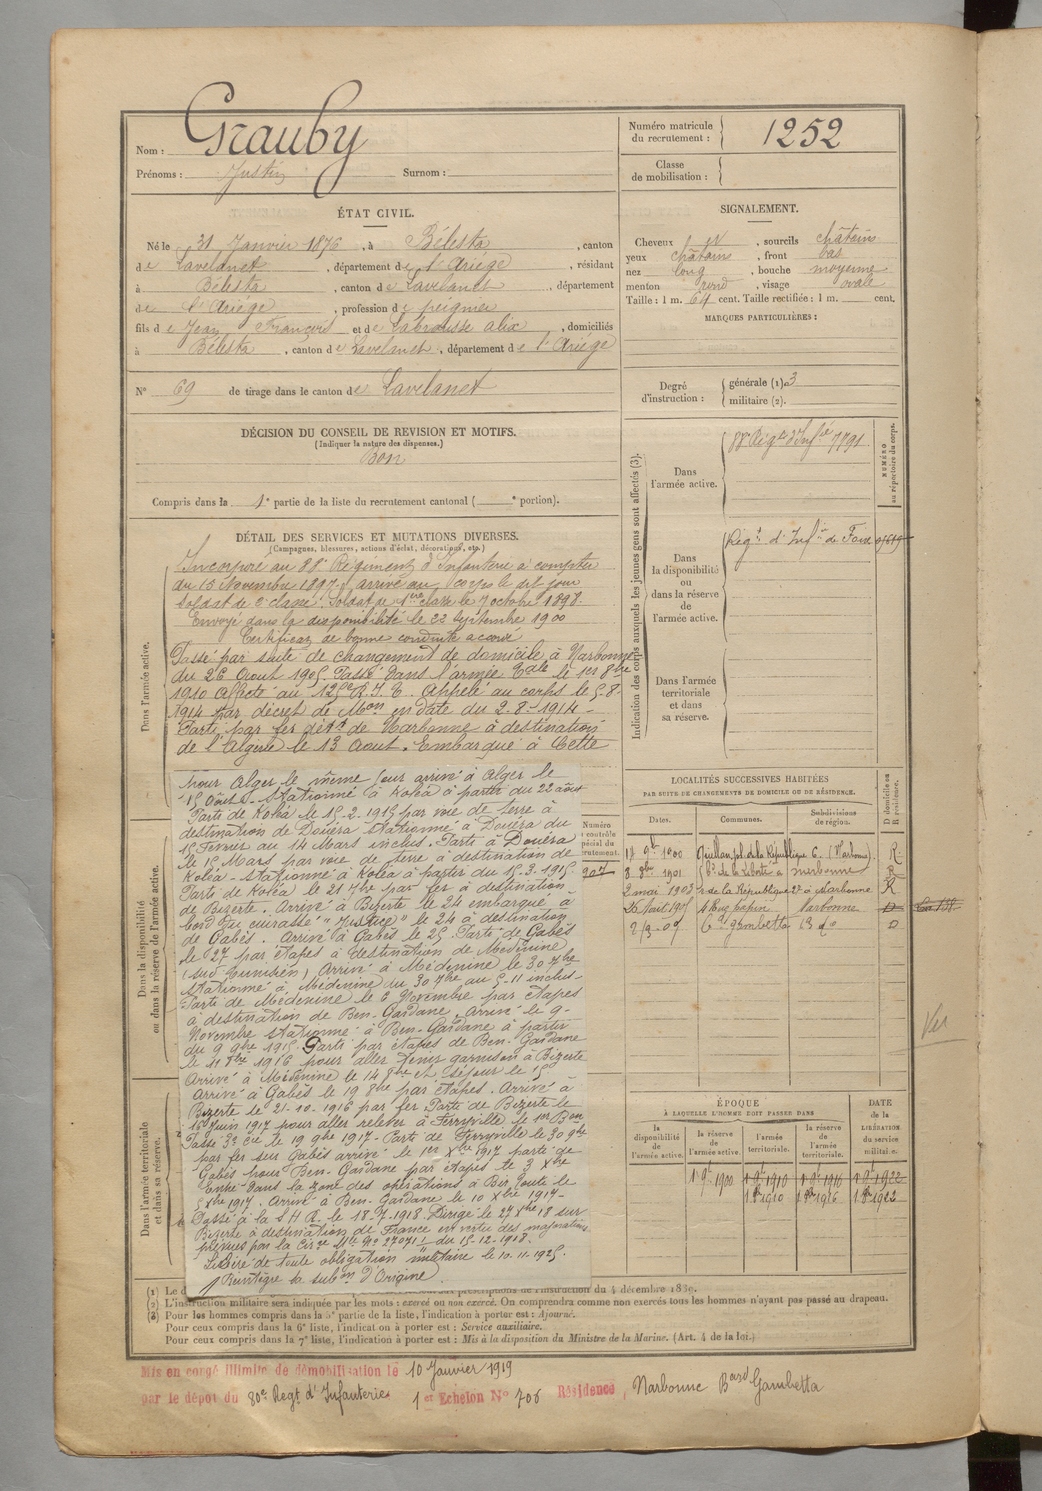 Nom : Grauby
Prénoms : Justin Surnom :
Numéro matricule du recrutement : 1252
Classe de mobilisation :
ÉTAT CIVIL.
Né le 31 Janvier 1876, à Bélesta, canton
de Lavelanet, département de l'Ariége, résidant
à Bélesta, canton de Lavelanet, département
de l'Ariége, profession de peignier
fils de Jean François et de Labrousse Alix, domiciliés
à Bélesta, canton de Lavelanet, département de l'Ariége
SIGNALEMENT.
Cheveux et, sourcils châtains
yeux châtains, front bas
nez long, bouche moyenne
menton rond, visage ovale
Taille : 1 m. 64 cent. Taille rectifiée : 1 m. cent.
MARQUES PARTICULIÈRES :
N° 69 de tirage dans le canton de Lavelanet
Degré d'instruction : générale (1). 3
militaire (2).
DÉCISION DU CONSEIL DE REVISION ET MOTIFS.
(Indiquer la nature des dispenses.)
Bon
Compris dans la 1e partie de la liste du recrutement cantonal ( e portion).
DÉTAIL DES SERVICES ET MUTATIONS DIVERSES.
(Campagnes, blessures, actions d'éclat, décorations, etc.)
Dans l'armée active.
Incorporé au 88e Régiment d'Infanterie à compter
du 15 Novembre 1897. arrivé au corps le dit jour
soldat de 2e classe. Soldat de 1ère classe le 7 octobre 1898.
Envoyé dans la disponibilité le 22 Septembre 1900
Certificat de bonne conduite accordé
Passé par suite de changement de domicile à Narbonne
du 26 Aout 1905. Passé dans l'armée Tale le 1er 8bre
1910 Affecté au 125e R.I.T. Appelé au corps le 5-8-
1914 par décret de Mon en date du 2-8-1914 -
Parti par fer détt de Narbonne à destination
de l'Algérie le 13 Aout. Embarqué à Cette
Dans la disponibilité ou dans la réserve de l'armée active.
pour Alger le même jour arrivé à Alger le
15 Août - Stationné à Koléa à partir du 22 août
Parti de Koléa le 15-2-1915 par voie de terre à
destination de Douéra Stationné à Douéra du
15 Février au 14 Mars inclus. Parti à Douéra
le 15 Mars par voie de terre à destination de
Koléa - Stationné à Koléa à partir du 15-3-1915
Parti de Koléa le 21 7bre par fer à destination
de Bizerte. Arrivé à Bizerte le 24 embarqué à
bord du cuirassé "Justice" le 24 à destination
de Gabès. Arrivé à Gabès le 25. Parti de Gabès
le 27 par étapes à destination de Médenine
(sud Tunisien) Arrivé à Médenine le 30 7bre
Stationné à Médenine du 30 7bre au 5-11 inclus-
Parti de Médenine le 6 Novembre par étapes
à destination de Ben-Gardane. Arrivé le 9-
Novembre Stationné à Ben-Gardane à partir
du 9 9bre 1915. Parti par étapes de Ben-Gardane
le 11 8bre 1916 pour aller tenir garnison à Bizerte
Arrivé à Médenine le 14 8bre et séjour le 15
Arrivé à Gabès le 19 8bre par étapes. Arrivé à
Bizerte le 21-10-1916 par fer Parti de Bizerte le
16 Juin 1917 pour aller relever à Ferryville le 1er Bon
Passé 3e Cie le 19 9bre 1917. Parti de Ferryville le 30 9bre
par fer sur Gabès arrivé le 1er Xbre 1917 parti de
Gabès pour Ben-Gardane par étapes le 3 Xbre
Entré dans la zone des opérations à Bir Zoute le
Xbre 1917. Arrivé à Ben-Gardane le 10 Xbre 1917-
Passé à la S H R. le 18-7-1918 Dirigé le 27 Xbre 18 sur
Bizerte à destination de France en vertu des majorations
prévues par la Circre Mlle No 27071 du 15-12-1918.
Libéré de toute obligation militaire le 10.11.1925.
Réintègre la subon d'Origine
Dans l'armée territoriale et dans sa réserve.
Indication des corps auxquels les jeunes gens sont affectés (3).
Dans l'armée active. 88e Régt d'Infie 7791
NUMÉRO au répertoire du corps.
Dans la disponibilité ou dans la réserve de l'armée active. Régt d'Infie de Foix
Dans l'armée territoriale et dans sa réserve.
Numéro
907
LOCALITÉS SUCCESSIVES HABITÉES
PAR SUITE DE CHANGEMENTS DE DOMICILE OU DE RÉSIDENCE.
Dates. Communes. Subdivisions de région. D domicile ou R résidence.
1900 de la République 6. (Narbonne). R
8 8bre 1901 de la Liberté à Narbonne R
2 mai 1903 r de la République 2e à Narbonne R
26 Aout 1905 4 Rue Narbonne D
2/3-09 Bd Gambetta 13 do D
ÉPOQUE
À LAQUELLE L'HOMME DOIT PASSER DANS
la disponibilité de l'armée active. la réserve de l'armée active. l'armée territoriale. la réserve de l'armée territoriale. DATE de la LIBÉRATION du service militaire.
1900 1910 1916 1922
1910 1916 1922
(1) Le d prescriptions de l'instruction du 4 décembre 1889.
(2) L'instruction militaire sera indiquée par les mots : exercé ou non exercé. On comprendra comme non exercés tous les hommes n'ayant pas passé au drapeau.
(3) Pour les hommes compris dans la 5e partie de la liste, l'indication à porter est : Ajourné.
Pour ceux compris dans la 6e liste, l'indication à porter est : Service auxiliaire.
Pour ceux compris dans la 7e liste, l'indication à porter est : Mis à la disposition du Ministre de la Marine. (Art. 4 de la loi.)
Mis en congé illimité de démobilisation le 10 Janvier 1919
par le dépôt du 80e Regt d'Infanterie 1er Echelon N° 706 Résidence, Narbonne Bard Gambetta